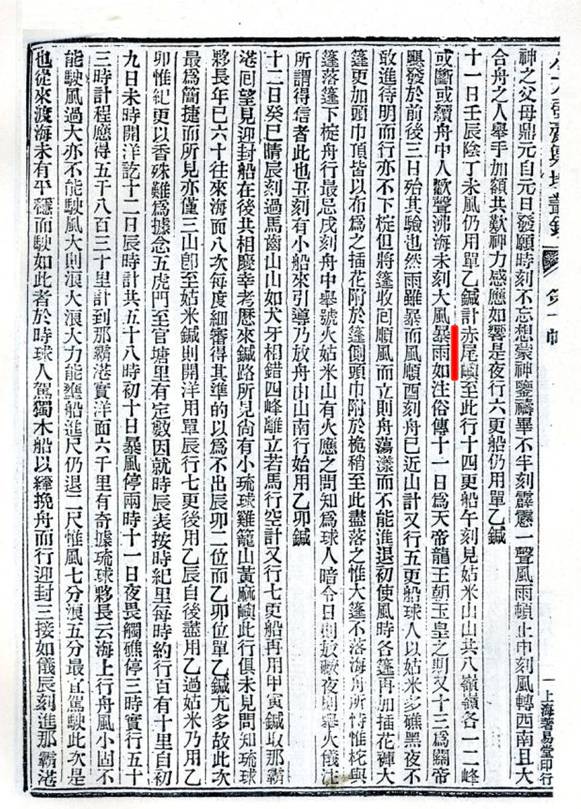 小方壺齋輿地叢鈔 第十帙
上海著易堂印行
神之父母鼎元自元日發願時刻不忘想蒙神鑒禱畢不半刻霹靂一聲風雨頓止申刻風轉西南且大
合舟之人舉手加額共歎神力感應如響是夜行六更船仍用單乙鍼
十一日壬辰陰丁未風仍用單乙鍼計赤尾嶼至此行十四更船午刻見姑米山山共八嶺嶺各一二峰
或斷或續舟中人歡聲沸海未刻大風暴雨如注俗傳十一日爲天帝龍王朝玉皇之期又十三爲關帝
颶發於前後三日殆其驗也然雨雖暴而風順酉刻舟已近山計又行五更船球人以姑米多礁黑夜不
敢進待明而行亦不下椗但將篷收回順風而立則舟蕩漾而不能進退初使風時各篷再加插花褲大
篷更加頭巾頂皆以布爲之插花附於篷側頭巾附於桅梢至此盡落之惟大篷不落海舟所恃惟柁與
篷落篷下椗舟行最忌戌刻舟中舉號火姑米山有火應之問知爲球人暗令日則放礮夜則舉火儀注
所謂得信者此也丑刻有小船來引導乃放舟由山南行始用乙卯鍼
十二日癸巳晴辰刻過馬齒山山如犬牙相錯四峰離立若馬行空計又行七更船再用甲寅鍼取那霸
港囘望見迎封船在後共相慶幸老歷來鍼路所見尙有小琉球雞籠山黃麻嶼此行俱未見問知琉球
夥長年已六十往來海面八次每度細審得其準的以爲不出辰卯二位而乙卯位單乙鍼尤多故此次
最爲簡捷而所見亦僅三山卽至姑米鍼則開洋用單辰行七更後用乙辰自後盡用乙過姑米乃用乙
卯惟紀更以香殊難爲據念五虎門至官塘里有定數因就時辰表按時紀里每時約行百有十里自初
九日未時開洋訖十二日辰時計共五十八時初十日暴風停兩時十一日夜畏觸礁停三時實行五十
三時計程應得五千八百三十里計到那霸港實洋面六千里有奇據琉球夥長云海上行舟風小固不
能駛風過大亦不能駛風大則浪大浪大力能壅船進尺仍退二尺惟風七分浪五分最宜駕駛此次是
也從來渡海未有平穩而駛如此者於時球人駕獨木船以縴挽舟而行迎封三接如儀辰刻進那霸港